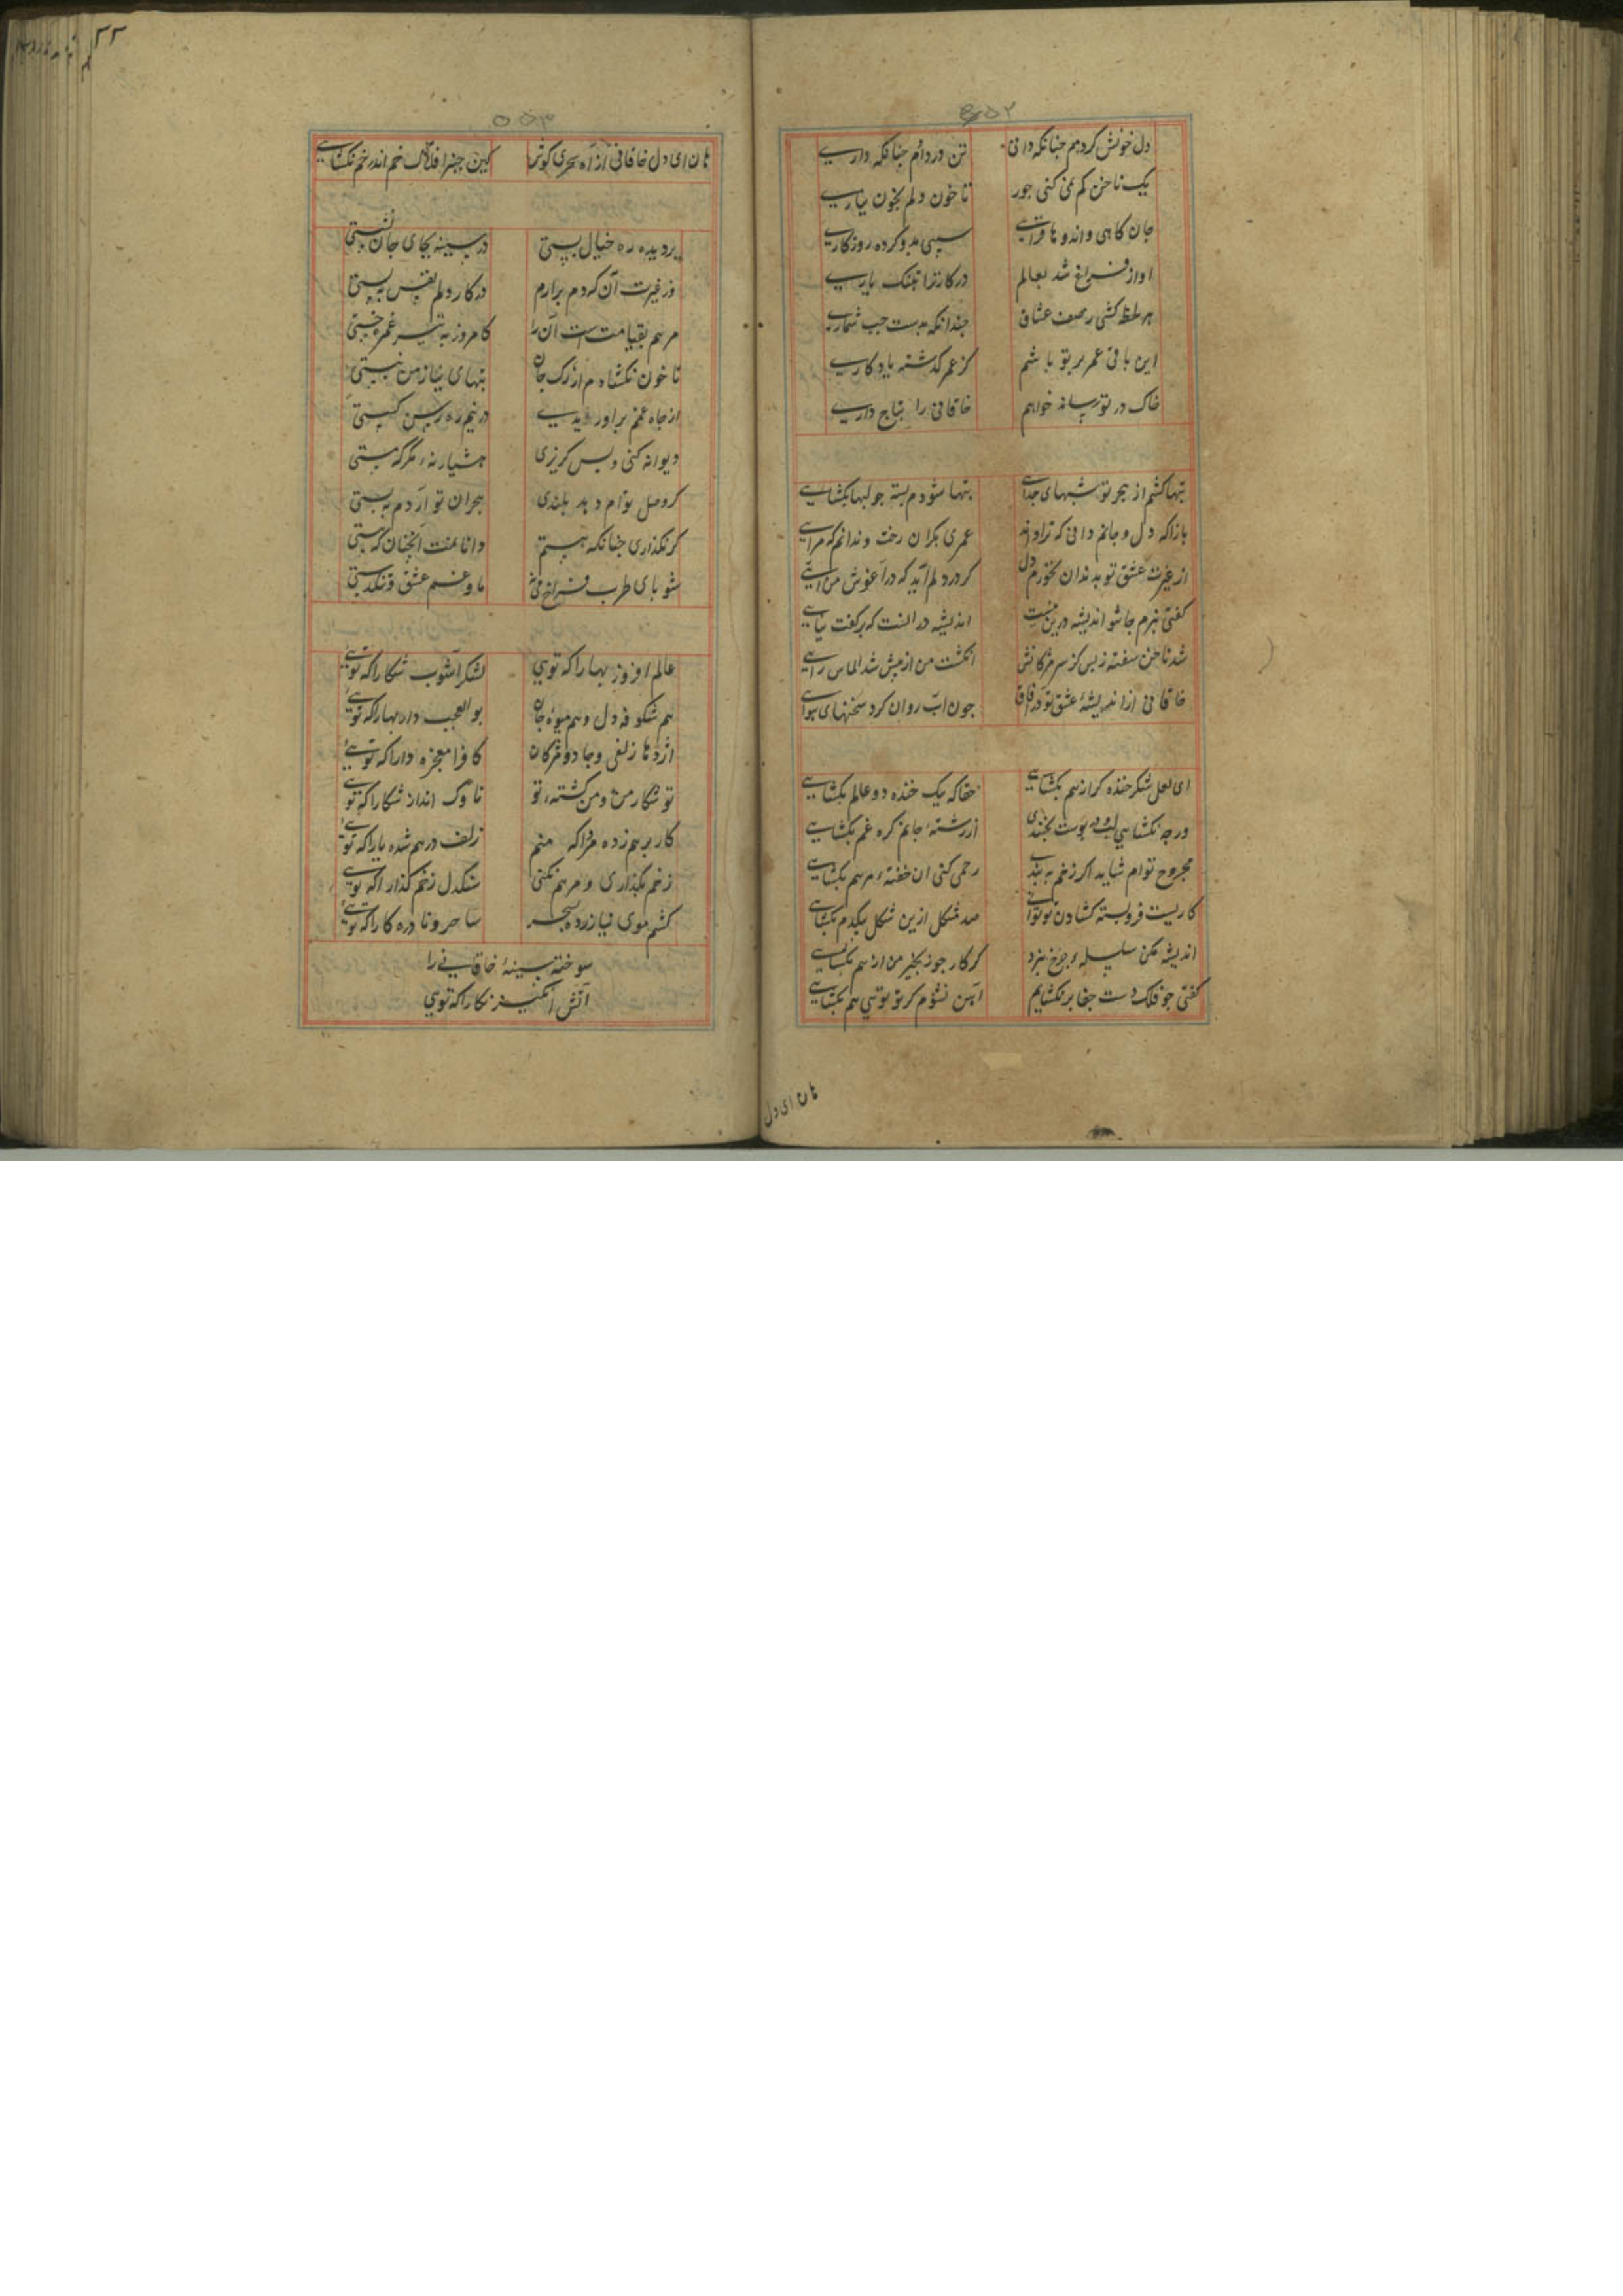 ۵۵۲
دل خونش کردیم جنانکه دانی تن در دادم جنانکه داری
یک ناخن کم نمی کنی جور تا خون دلم بخون نیاری
جان کاهی و اندوها فزائی سیبی بدو کرده روزکاری
اواز فراغ شد بعالم درکار
هر لحظه کشی ز صف عشاق جندانکه بدست جب شماری
این باقی عمر بر تو باشم کز عمر کذشته یادکاری
خاک در تو رساند خواهم خاقانی را بتاج داری
تبها کشم از هجر تو شبهای جدائی تبها شودم بسته جو لبها بکشائی
بازا که دل و جانم دانی که ترا اند عمری بکران رفت و ندانم که مرائی
از غیرت عشق تو بدندان بخورم دل کر در دلم آید که در آغوش من آئی
کفتی نبرم جا شو اندیشه درین نیست اندیشه در آنست که بر کفت نیائی
شد ناخن سفته ز بس کز سر مژکانش انکشت من از پیش شد الماس رائی
خاقانی از اندیشهٔ عشق تو در آفاق جون آب روان کرد سخنهای هوائی
ای لعل شکر خنده کر از هم بکشائی حقا که بیک خنده دو عالم بکشائی
ورجه نکشائی لب و در پوست بخندی از رشتهٔ جانم کره غم بکشائی
مجروح توام شاید اکر زخم ببندی رحمی کنی ان حقهٔ مرهم بکشائی
کاریست فروبسته کشادن تو توانی صد مشکل ازین شکل بیکدم بکشائی
اندیشه مکن سلسلهٔ جرخ نبرد کر کار جو زنجیر من از هم بکشائی
کفتی جو فلک دست جفا بر نکشایم ایمن نشوم کر تو توئی هم بکشائی
هان ای دل
۵۵۳
هان ای دل خاقانی از آه سحری کوش کین جنبر افلاک خم اندر خم بکشائی
بر دیده ره خیال بستی در سینه بجای جان نشستی
وز غیرت آن که دم برارم در کار دلم نفس شکستی
مرهم بقیامت است آن را کامروز به تیر غمزه خستی
تا خون نکشادم از رک جان تبهای نیاز من نبستی
از جاه غمم براوریدی در نیم ره رسن کسستی
دیوانه کنی و پس کریزی هشیار نهٔ مکر که مستی
کر وصل توام دهد بلندی هجران تو آردم به پستی
کر نکذاری جنانکه هستم دانا عنت آنجنان که هستی
شو پای طرب فراخ نی ما و غم عشق و تنکدستی
عالم افروز بهارا که توئی لشکر آشوب شکارا که توئی
هم شکوفه دل و هم میوهٔ جان بوالعجب وار بهارا که توئی
اژدها زلفی و جادو مژکان کافرا معجزه دارا که توئی
تو شکار من و من کشتهٔ تو ناوک انداز شکارا که توئی
کار برهم زده مردا که منم زلف درهم شده یارا که توئی
زخم بکذاری و مرهم نکنی سنکدل زخم کذارا که توئی
کشیم موی نیازرده بسحر ساحر و نادره کارا که توئی
سوختهٔ سینهٔ خاقانی را
آتش انکیز نکارا که توئی